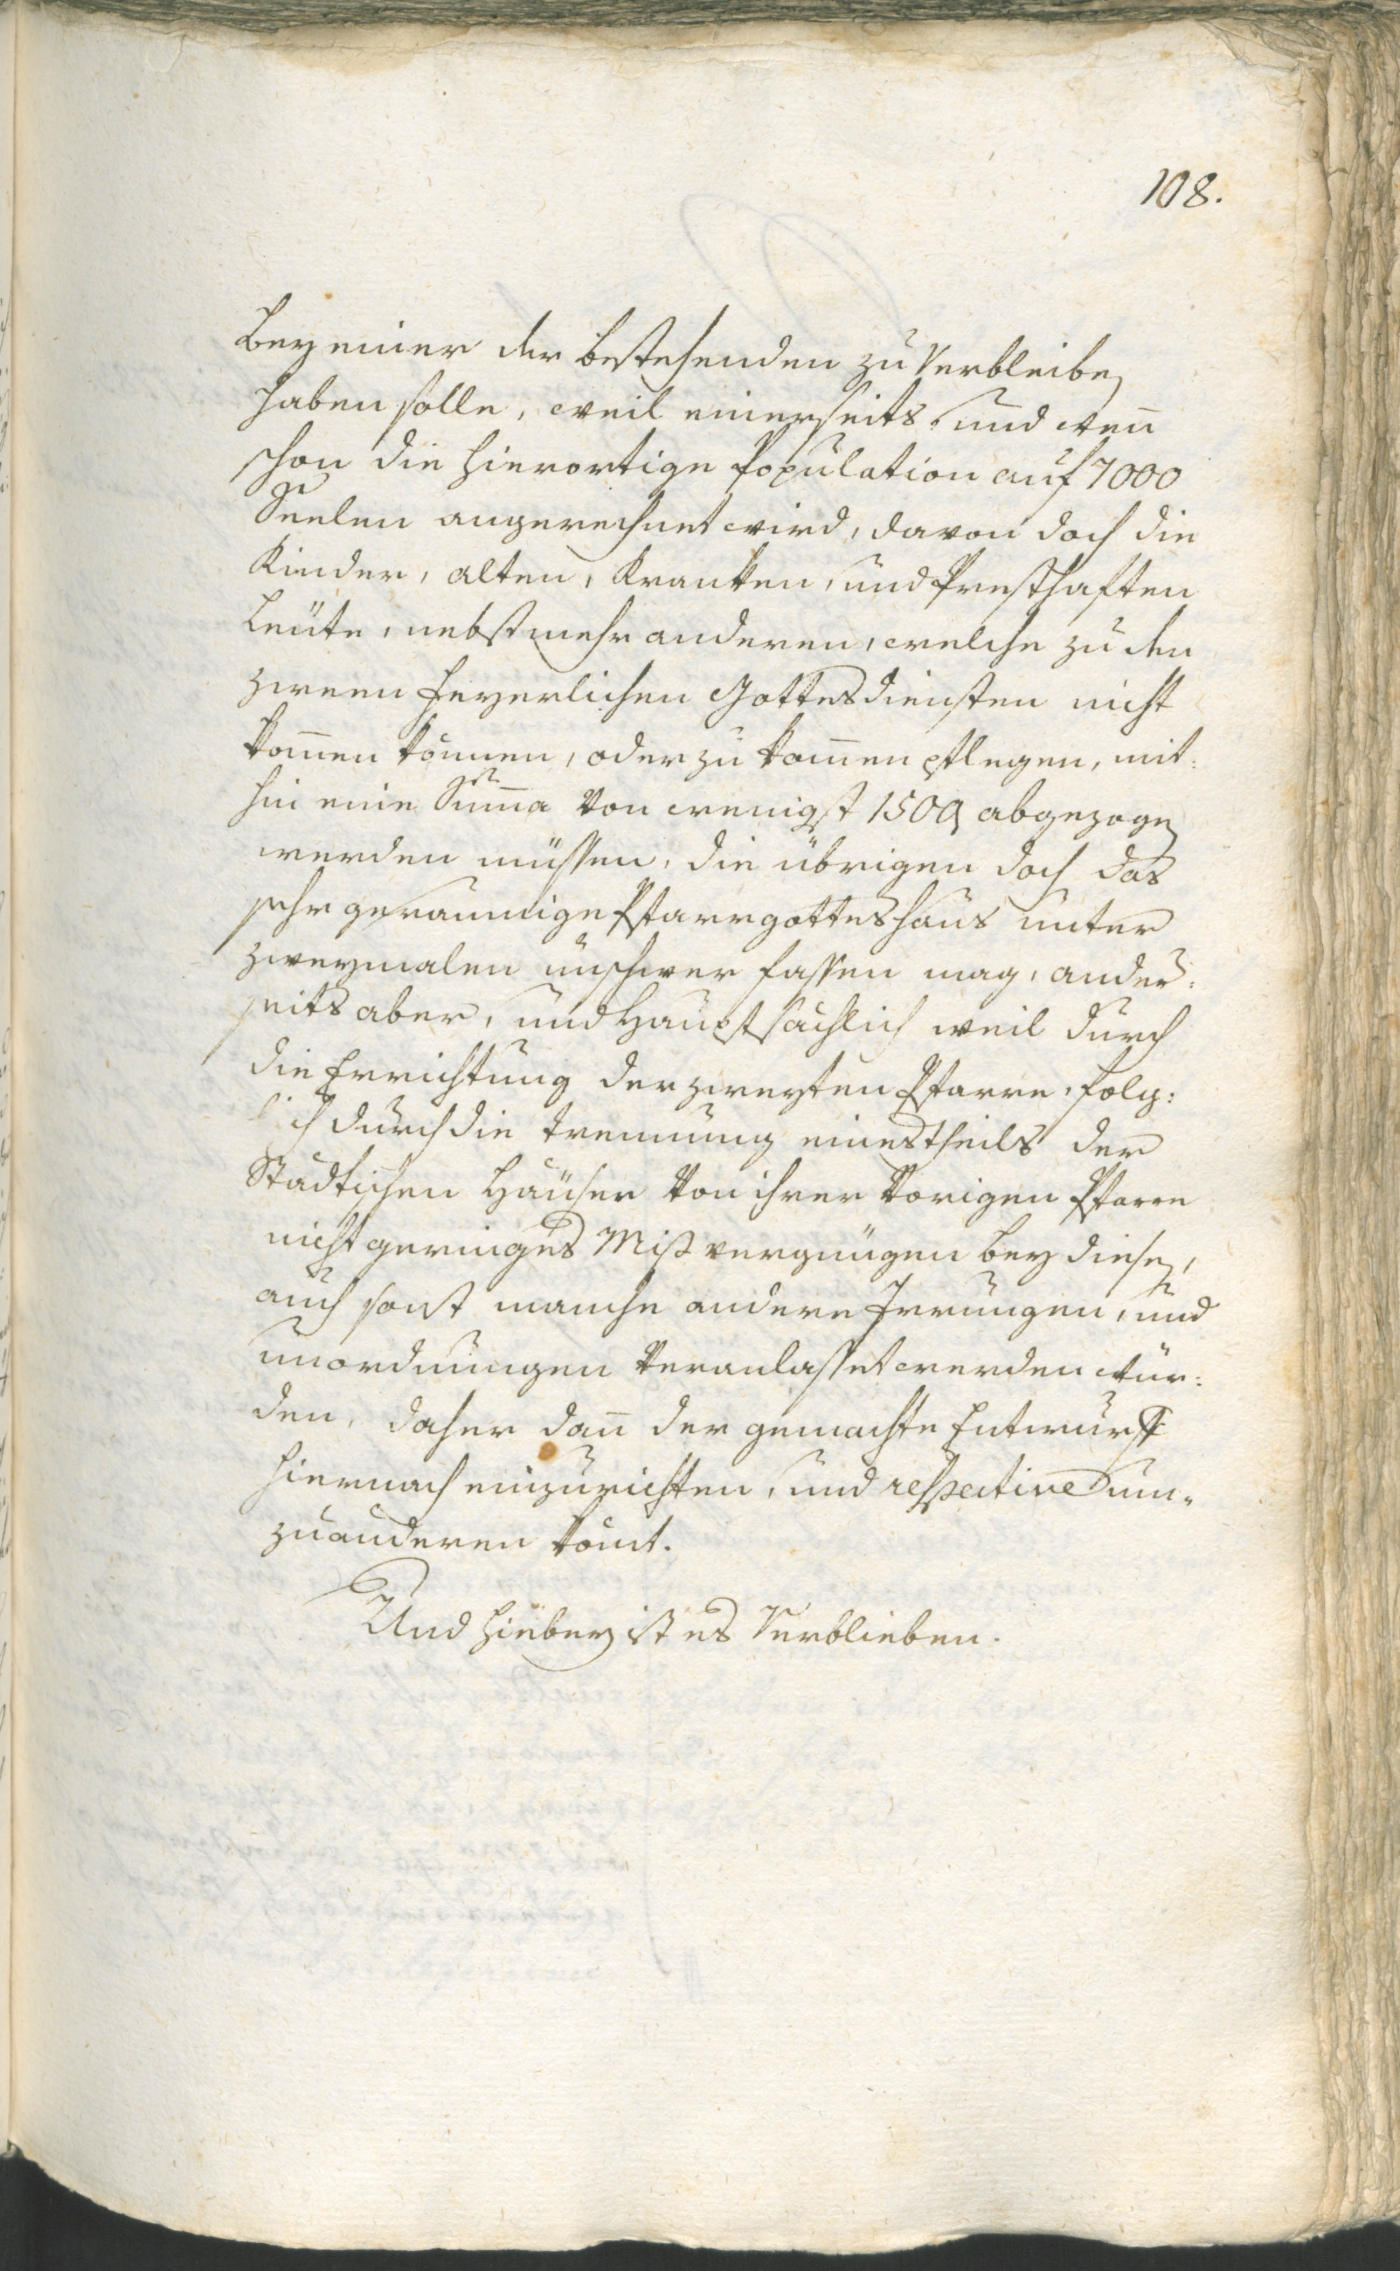 108.
bey einer der bestehenden zu verbleiben
haben solle, weil einerseits und weñ
schon die hierortige Population auf 7000
Seelen angerechnet wird, davon doch die
Kinder, alten, Kranken, und Presthaften
Leüte, nebst mehr anderen, welche zu den
zween Feyerlichen Gottesdiensten nicht
kom̃en können, oder zu kom̃en pflegen, mit:
hin eine Sum̃a von wenigst 1500 abgezogen
werden müssen, die übrigen doch das
sehr geraumige Pfarrgotteshaus unter
zweymalen unschwer fassen mag, ander:
seits aber, und Hauptsächlich weil durch
die Errichtung der zweyten Pfarre, folg:
lich durch die Trennung einestheils der
Stadtischen Häuser von ihrer vorigen Pfarre
nicht geringes Mißvergnügen bey diesen,
auch sonst manche andere Irrungen, und
unordnungen veranlasset werden wür:
den, daher dañ der gemachte Entwurf
hiernach einzurichten, und respective um-
zuanderen kom̃t.
Und hiebey ist es verblieben.